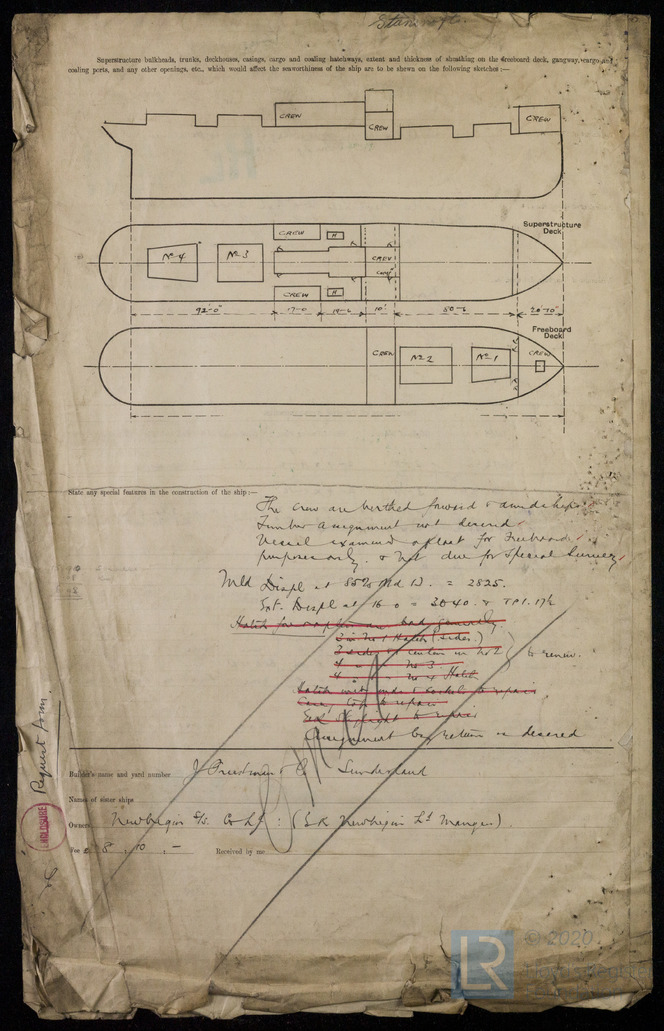 Superstructure bulkheads, trunks, deckhouses, casings, cargo and coaling hatchways, extent and thickness of sheathing on the freeboard deck, gangway, cargo and
coaling ports, and any other openings, etc., which would affect the seaworthiness of the ship are to be shewn on the following sketches:—
CREW
CREW
CREW
Superstructure
Deck
CREW
H
No 4
No 3
CREW
CREW
H
92-0"
17-0
10'
50-6
Freeboard
Deck
CREW
No 2
No 1
CREW
State any special features in the construction of the ship:—
The crew are berthed forward & amidships.
Timber assignment not desired.
Vessel examined afloat for Freeboard
purposes only. & not due for Special Survey
Mld Displ at 85% Mld D. = 2825.
Ext. Displ at 16 0 = 3040. & TPI. 17½
Hatch
2 in No 1 Hatch (sides)
in No 2
4 " " No 3 } to renew.
4 " " No 4 Hatch
to repair
to repair
Skylight to repair
Assignment by return is desired
Builder's name and yard number J Priestman & Co Sunderland
Names of sister ships
Owners Newbegin S/s. Co Ld : (E.R Newbegin Ld Manager)
Fee £ 8 . 10 . -
Received by me
Request Form
ENCLOSURE
LR
© 2020